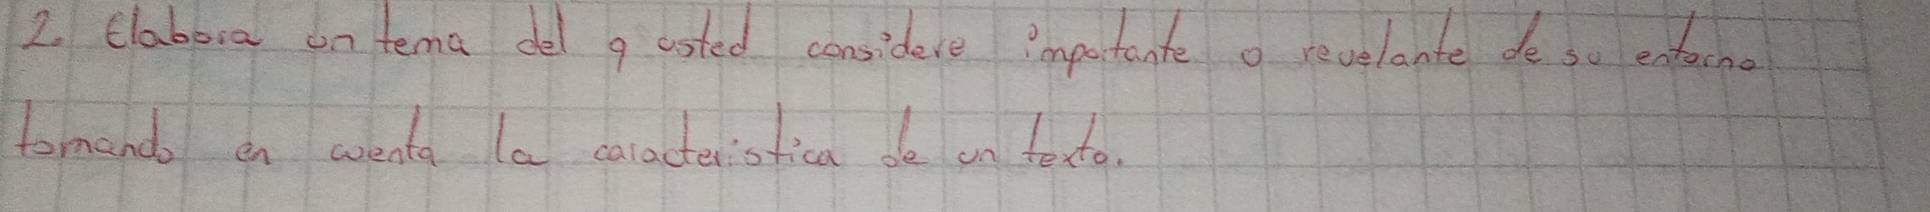 2. Elabora un tema del q usted considere importante o revelante de su entorno
tomando en cuenta la caracteristica de un texto.